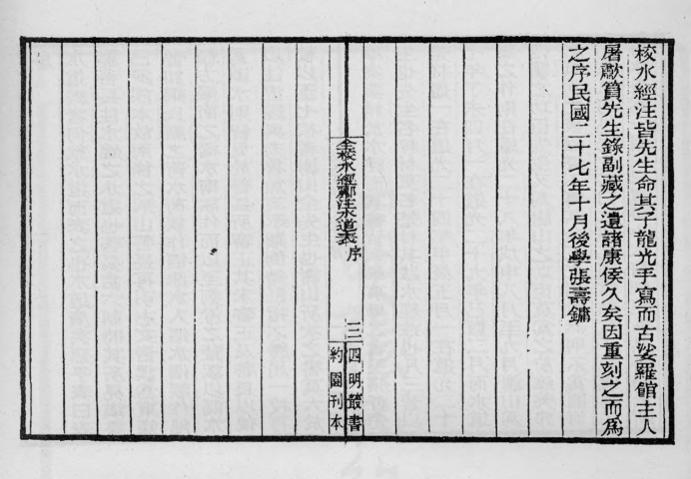 校水經注皆先生命其子龍光手寫而古娑羅館主人
屠獻簣先生錄副藏之遺諸康侯久矣因重刻之而爲
之序民國二十七年十月後學張壽鏞
全校水經酈注水道表 序
三
四明叢書
約園刊本